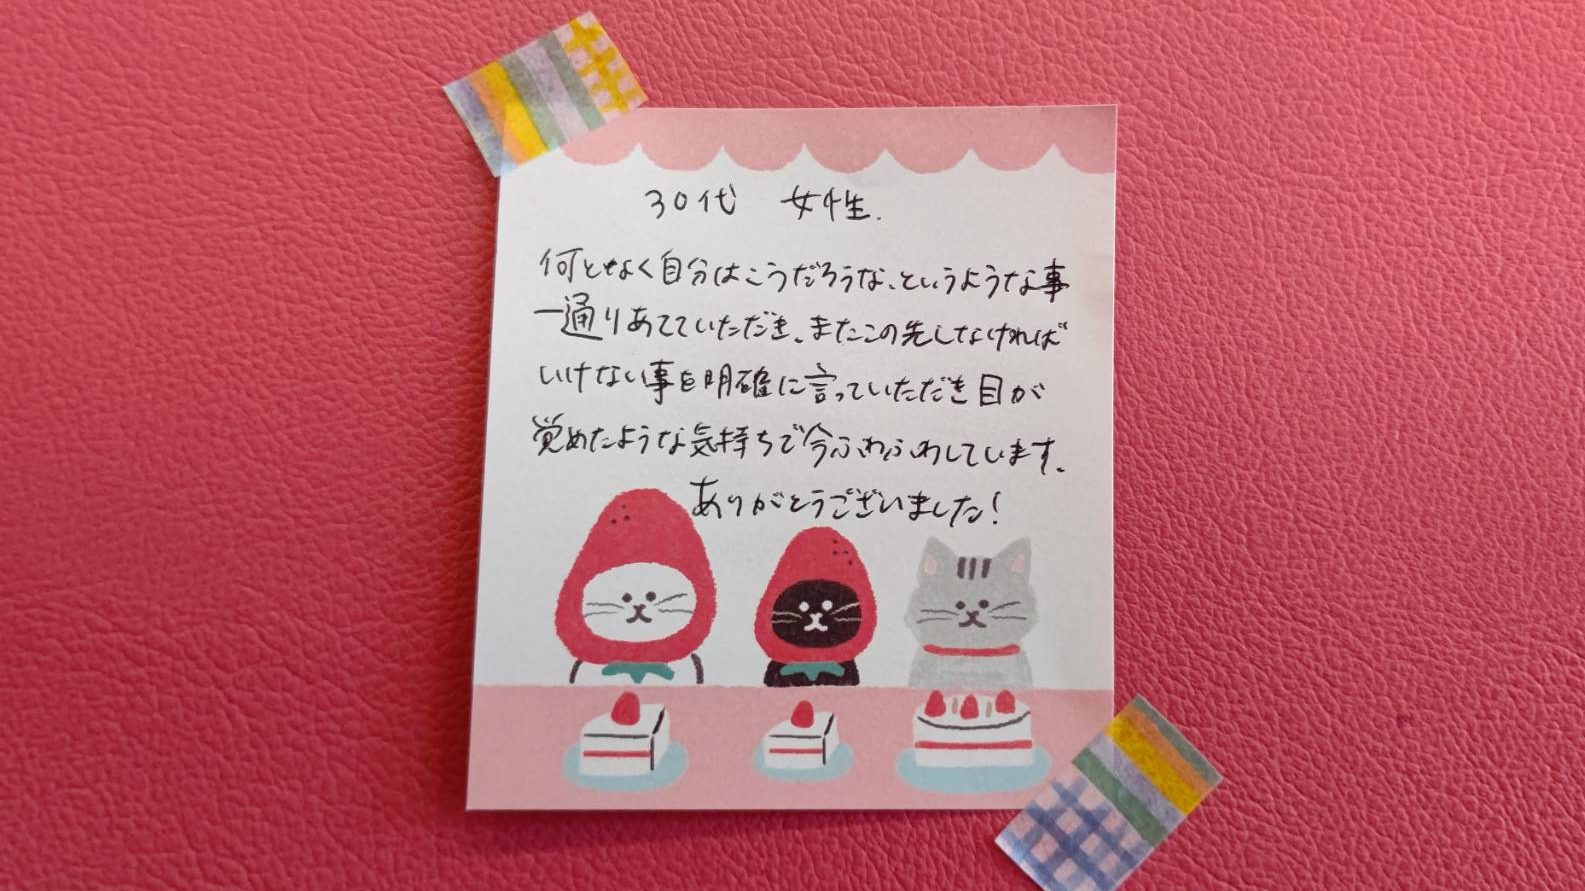 30代 女性.
何となく自分はこうだろうな、というような事
一通りあてていただき、またこの先しなければ
いけない事を明確に言っていただき目が
覚めたような気持ちで今ふわふわしています。
ありがとうございました!